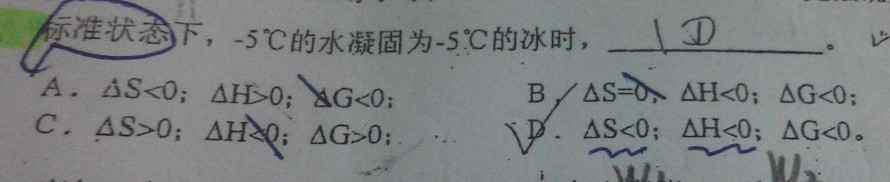 标准状态下，-5℃的水凝固为-5℃的冰时，D。
A．ΔS<0；ΔH>0；ΔG<0； B．ΔS=0、ΔH<0；ΔG<0；
C．ΔS>0；ΔH<0；ΔG>0； D．ΔS<0；ΔH<0；ΔG<0。